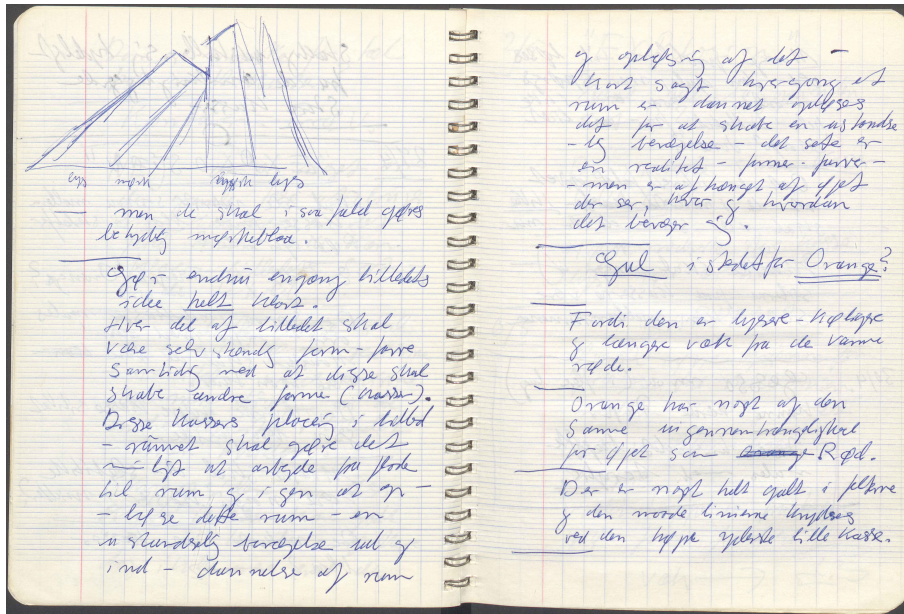 lys mørk mørk lys
— men de skal i saa fald gøres
betydelig mørkeblaa.
Gør endnu engang billedets
ide helt klart.
Hver del af billedet skal
være selvstændig form-farve
samtidig med at disse skal
skabe andre former (kasser).
Disse kassers placering i billed
- rummet skal gøre det
muligt at arbejde fra flade
til rum og igen at op-
- løse dette rum - en
ustandselig bevægelse ud og
ind - dannelse af rum
og opløsning af det —
Kort sagt hvergang et
rum er dannet opløses
det for at skabe en ustandse
- lig bevægelse - det sete er
en realitet - former - farver -
- men er afhængt af øjet
der ser, hvor og hvordan
det bevæger sig.
Gul i stedet for Orange?
Fordi den er lysere -
og længere væk fra de varme
røde.
Orange har noget af den
samme uigennemtrængelighed
for øjet som orange Rød.
Der er noget helt galt i felterne
og den maade linierne krydses
ved den højre yderste lille kasse.